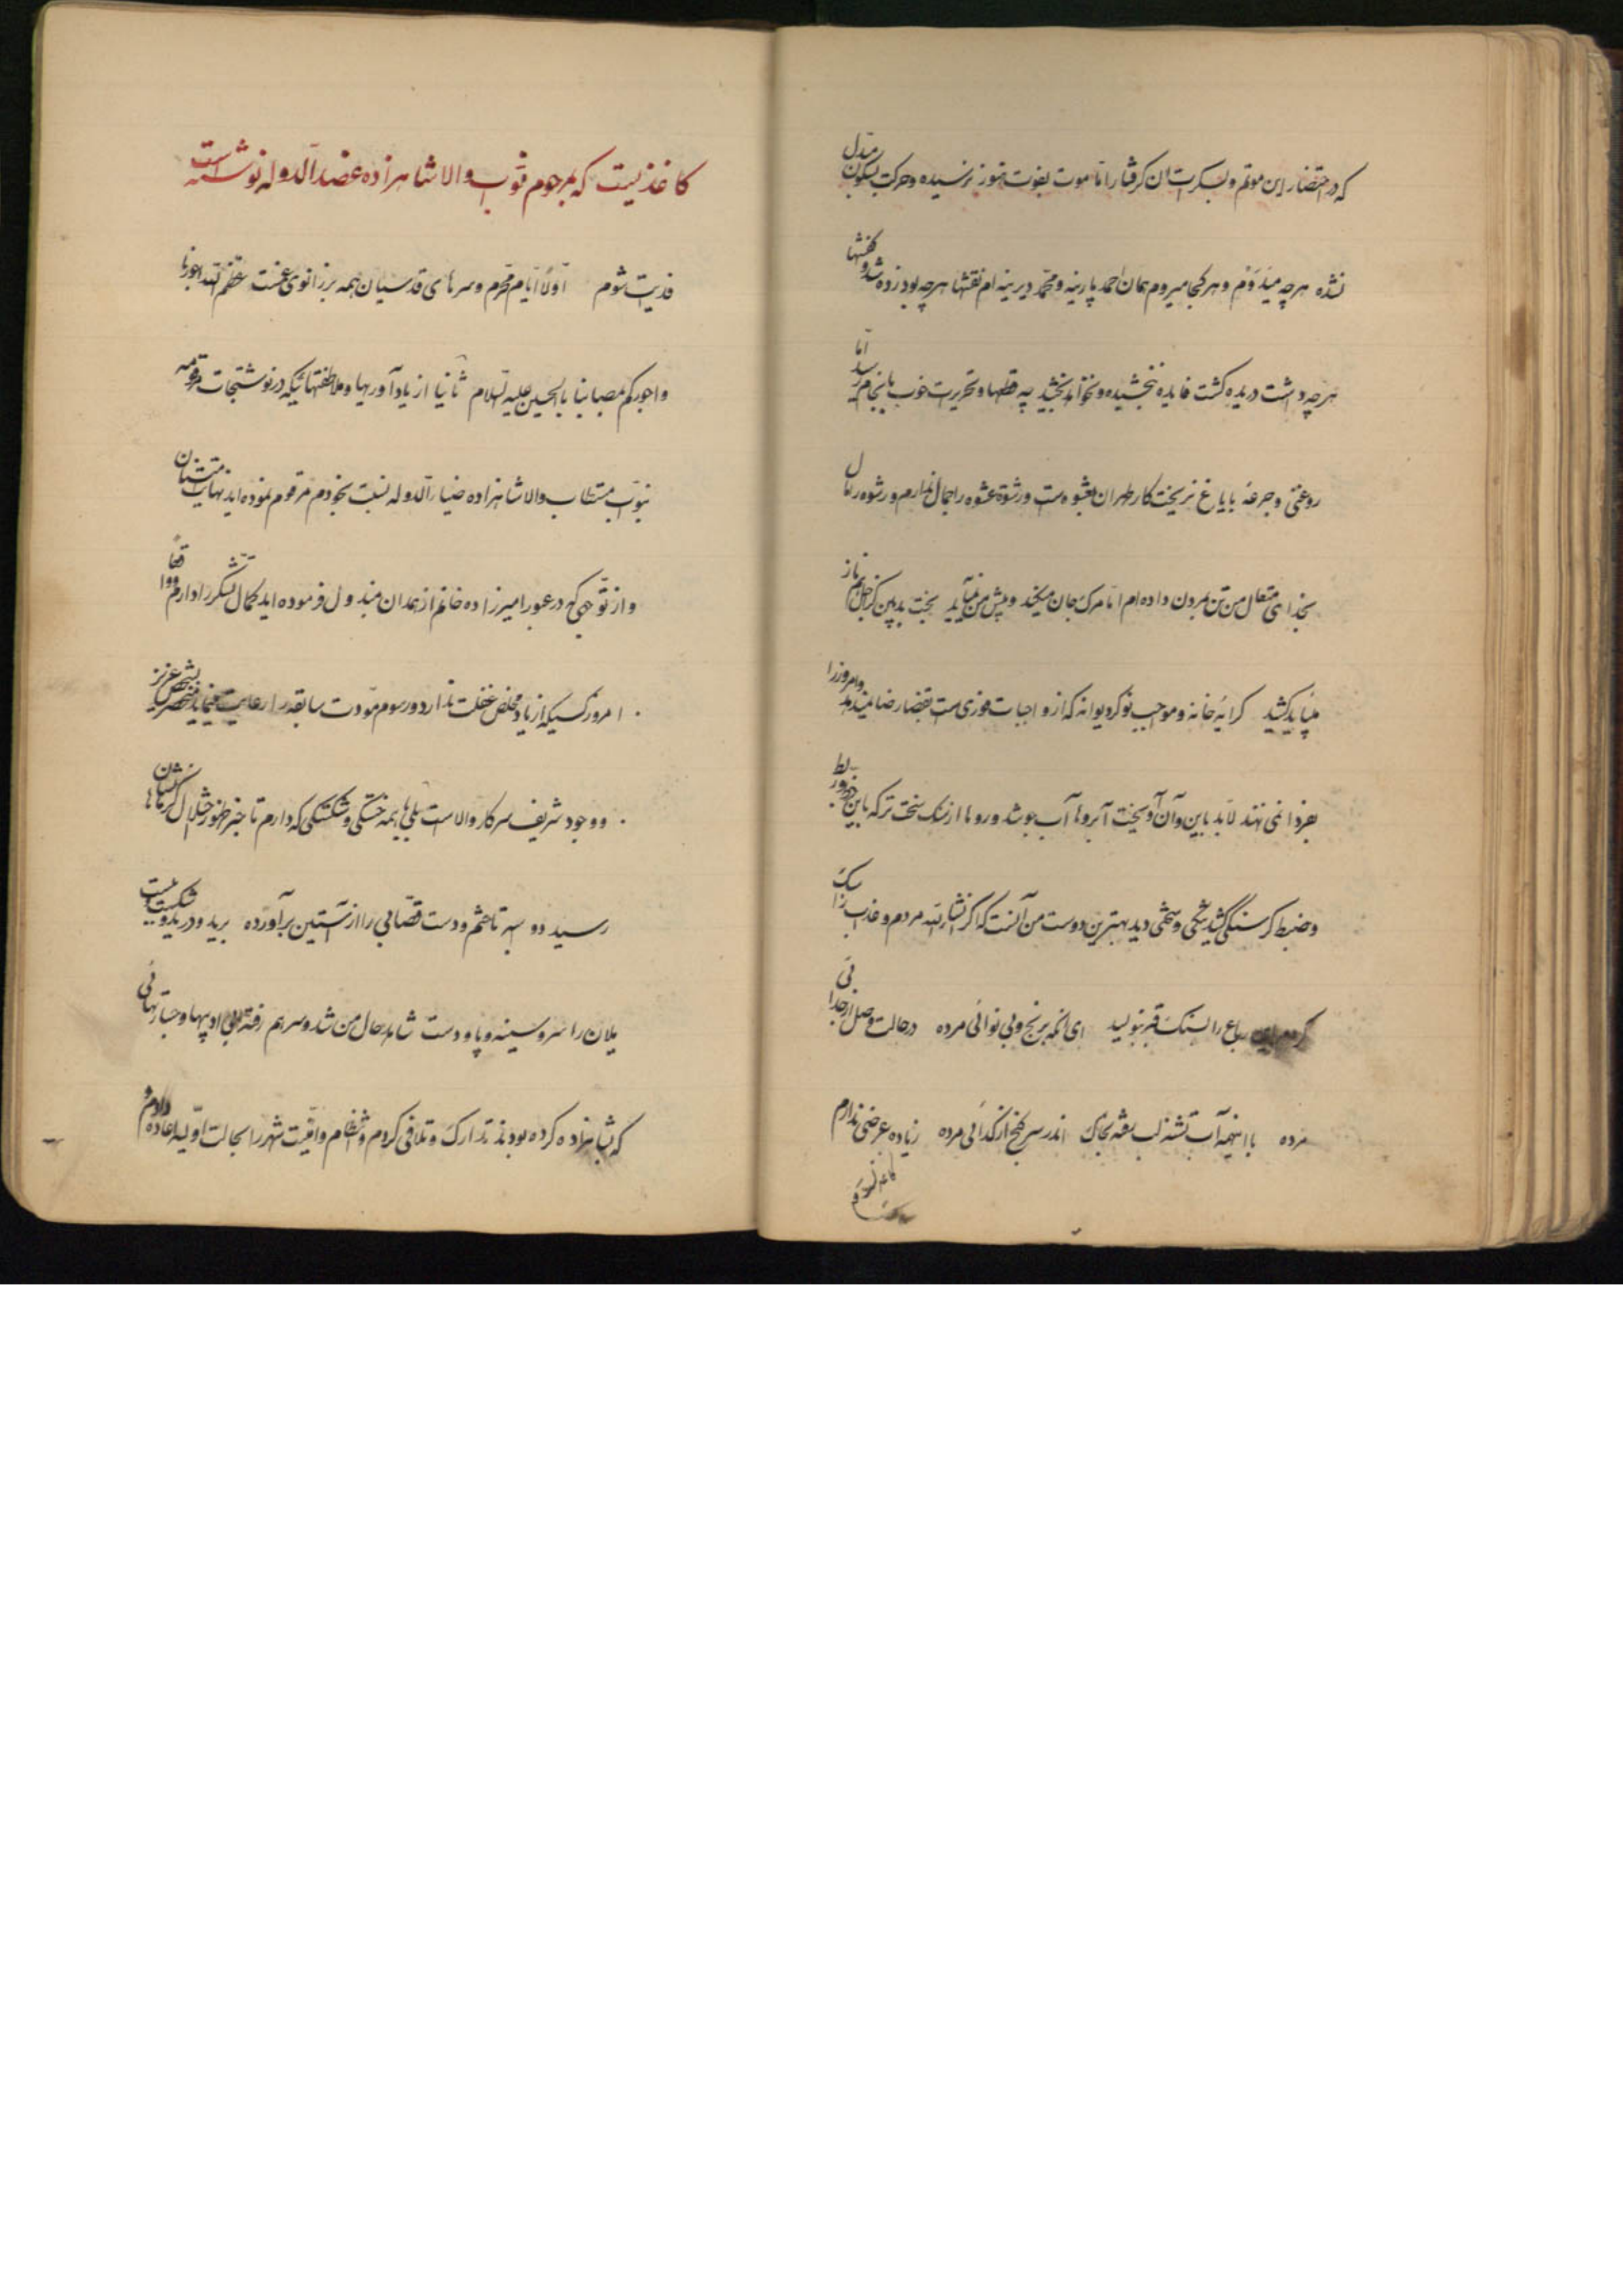 که در احتضار این موتم و بسکرات آن گرفتار اما موت بفوت هنوز نرسیده و حرکت بسکون مبدل
نشده هرچه میدوم و هر کجا میروم همان احمد پارینه و محمد دیرینه ام نقشها هرچه بود زده شد و کفشها
هرچه داشت دریده گشت فایده نبخشیده و نخواهد بخشید په خطها و تحریرات خوب بانجام رسید اما
روغنی و جرعهٔ بایاغ نریخت کار طهران بعشوه است و رشوه عشوه را جمال ندارم و رشوه را مال
بخدای متعال من تن بمردن داده ام اما مرگ جان میکند و پیش من نمیآید بخت بد بین کز اجل هم ناز
میباید کشید کرایه خانه و موجب نوکر دیوانه که از واجبات فوری است بقضا رضا نمیدهد و امروز را
بفردا نمی نهند لابد باین و آن آویخت آبرو با آب جو شد و رو ها از سنگ سخت تر که باین خرد و ربط
و ضبط گرسنگی کشید سختی دید بهترین دوست من آنست که اگر انشاء الله مردم و عذاب را سبک
کردم این رباعی را بسنگ قبر بنویسید ای آنکه برنج و بی نوائی مرده در حالت وصل از جدائی
مرده با اینهمه آب تشنه لب رفته بخاک اندر سر گنج از گدائی مرده زیاده عرضی ندارم
کاغذیست که بمرحوم نواب والا شاهزاده عضد الدوله نوشته است
فدیت شوم اولا ایام محرم و سرهای قدسیان همه بر زانوی غمست عظم الله اجورنا
و اجورکم بمصابنا بالحسین علیه السلام ثانیا از یادآوریها و ملاطفتهائیکه در نوشتجات مرقومه
بنواب مستطاب والا شاهزاده ضیاء الدوله نسبت بخودم مرقوم نموده اید نهایت امتنان
و از توجهی که در عبور امیرزاده خانم از همدان مبذول فرموده اید کمال تشکر را دارم واقعا
امروز کسیکه از یاد مخلص غفلت ندارد و رسوم مودت سابقه را رعایت مینماید منحصر بشخص عزیز
و وجود شریف سرکار والاست بلی با همه خستگی و شکستگی که دارم تا خبر ظهور جلال کرمانشاهان
رسید دو اسبه تاختم و دست قصابی را از آستین برآورده برید و درید و شکست و ببست
یلان را سر و سینه و پا و دست شامل حال من شد و سر هم رفته بی ادبیها و جسارتهائی
که بشاهزاده کرده بودند تدارک و تلافی کردم و انتظام و امنیت شهر را بحالت اولیه اعاده دادم